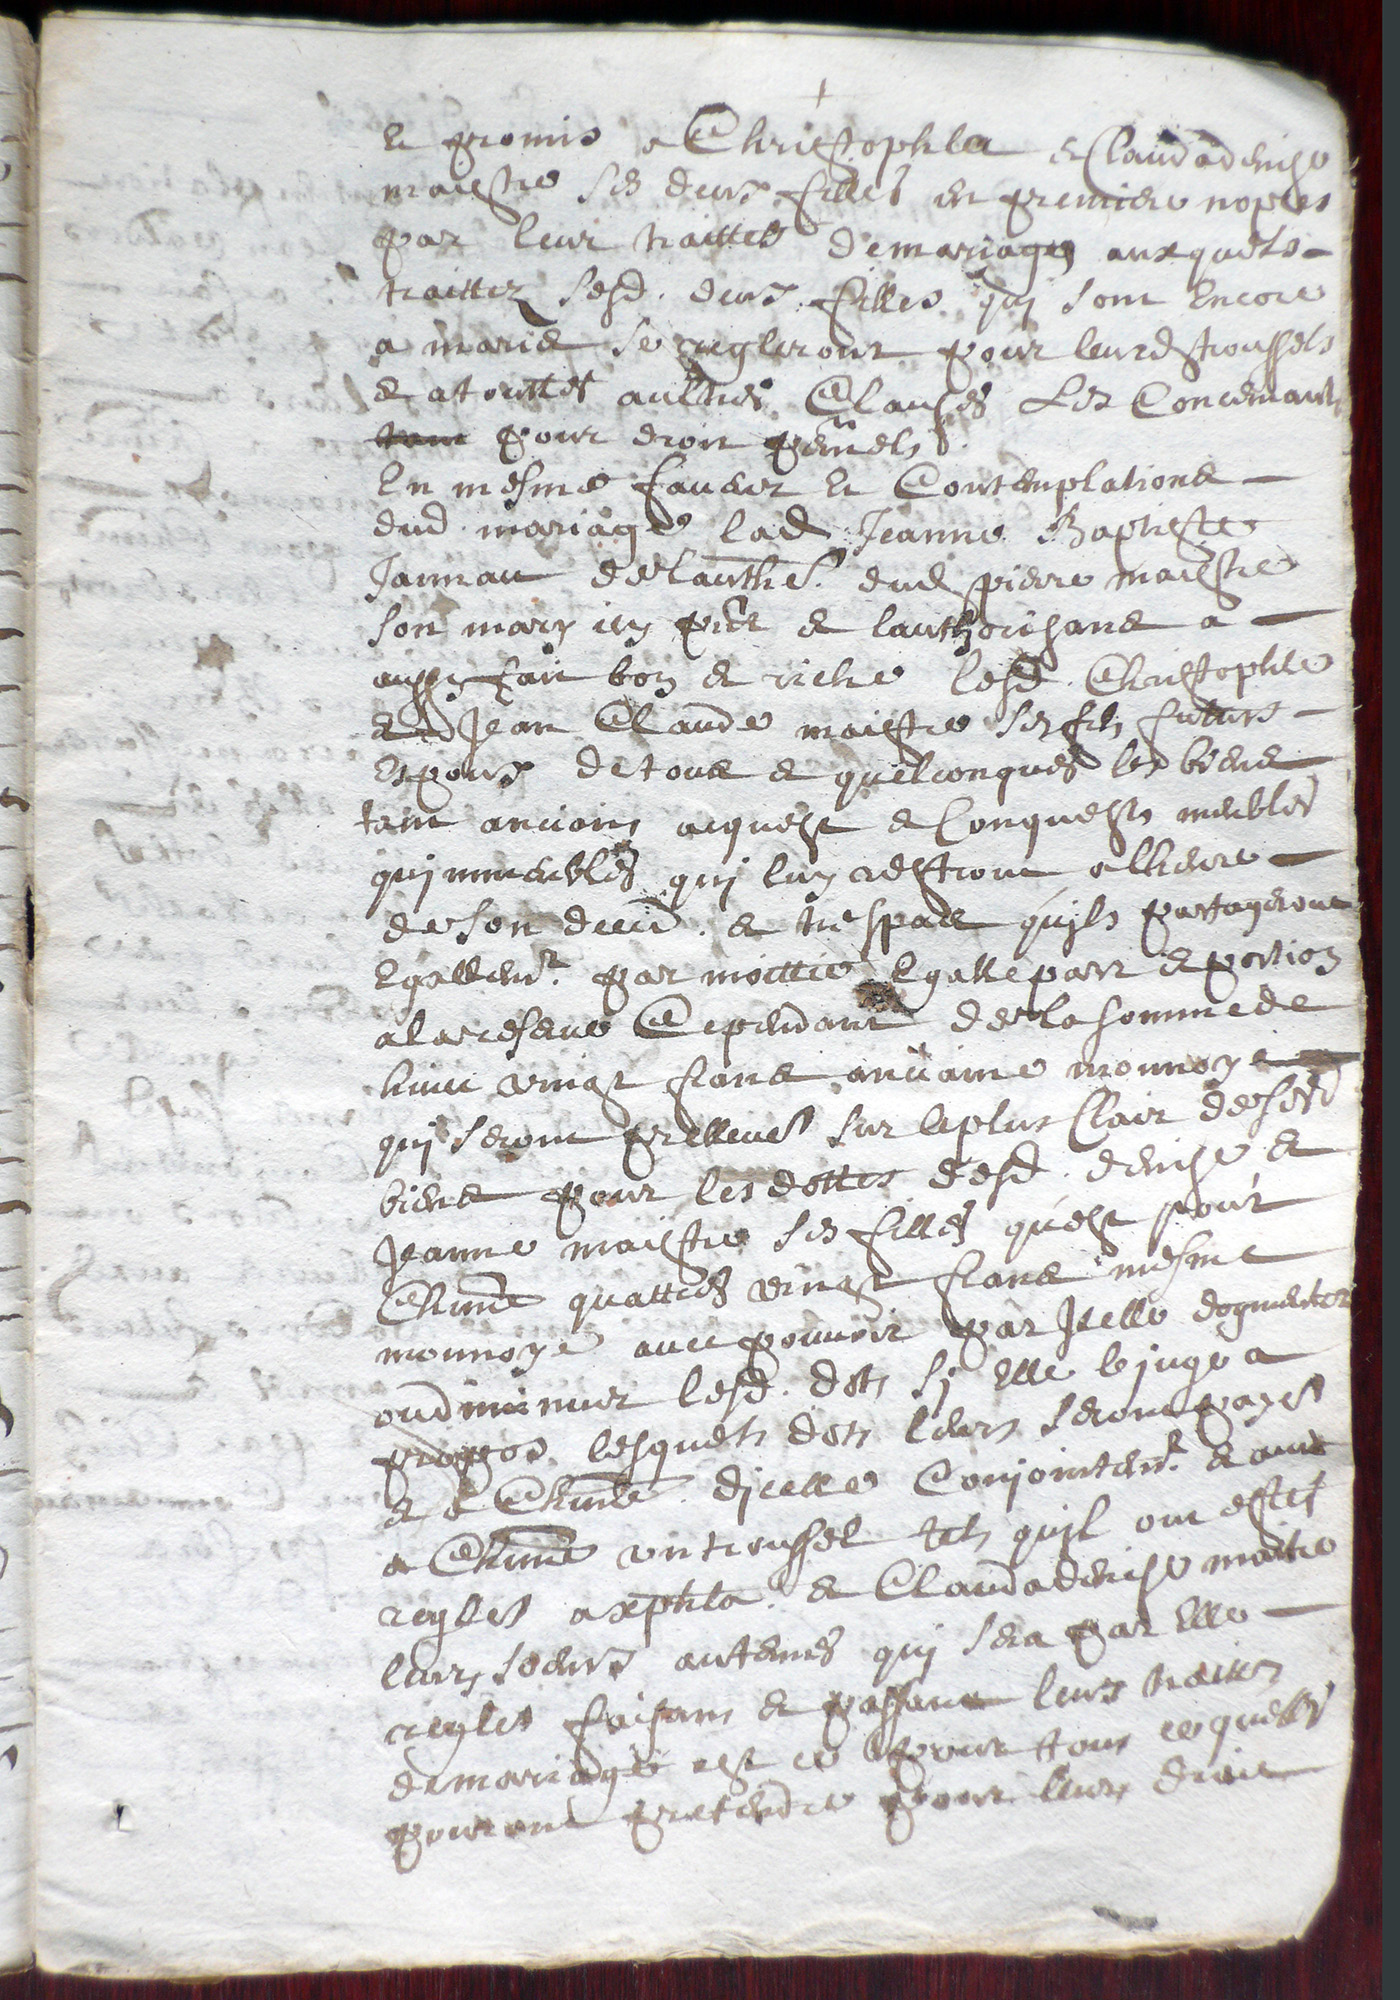 et promis a Christophla et Claudadenise
maistre ses deux filles en premiere nopces
par leur traittez de mariages auxquels
traittez sesd. deux filles qui sont encore
a marié se regleront pour leurs troussels
et a touttes aultres Clauses Les Concernants
tant pour droit pñels
En mesme faveur et Contemplations
dud mariage lad Jeanne Baptiste
de lauthé dud pierre maistre
son mary icy pñt et lauthorisant a
aussy fait bon et riche lesd. Christophle
et Jean Claude maistre ses fils futurs
Espoux de tous et quelconques les biens
tant anciens acquest et Conquests meubles
qu'immeubles qui luy resteront a lheure
de son deces et trespas quils partageront
Egallemt. par moittie Egalle part et portion
a la reserve Cependant de la somme de
huict vingt frans anciaine monnoye
qui seront prelleues sur le plus Clair de sesd
biens pour les dottes desd. denise et
Jeanne maistre ses filles quest pour
Chune quattres vingt frans mesme
monnoye avec pouvoir par Icelle dogmenter
ou diminuer lesd. dots sy Elle le juge a
propos lesquels dots leurs seront payes
et a Chune dicelle Conjointemt. et avec
a Chune un troussel tels quil ont estes
regles a xphla et Claudadenise maitre
leurs soeurs autemes qui sera par Elle
regles faisans et passant leurs traittez
de mariage est ce pour tous ce quelles
pourront pretendre pour leurs droit